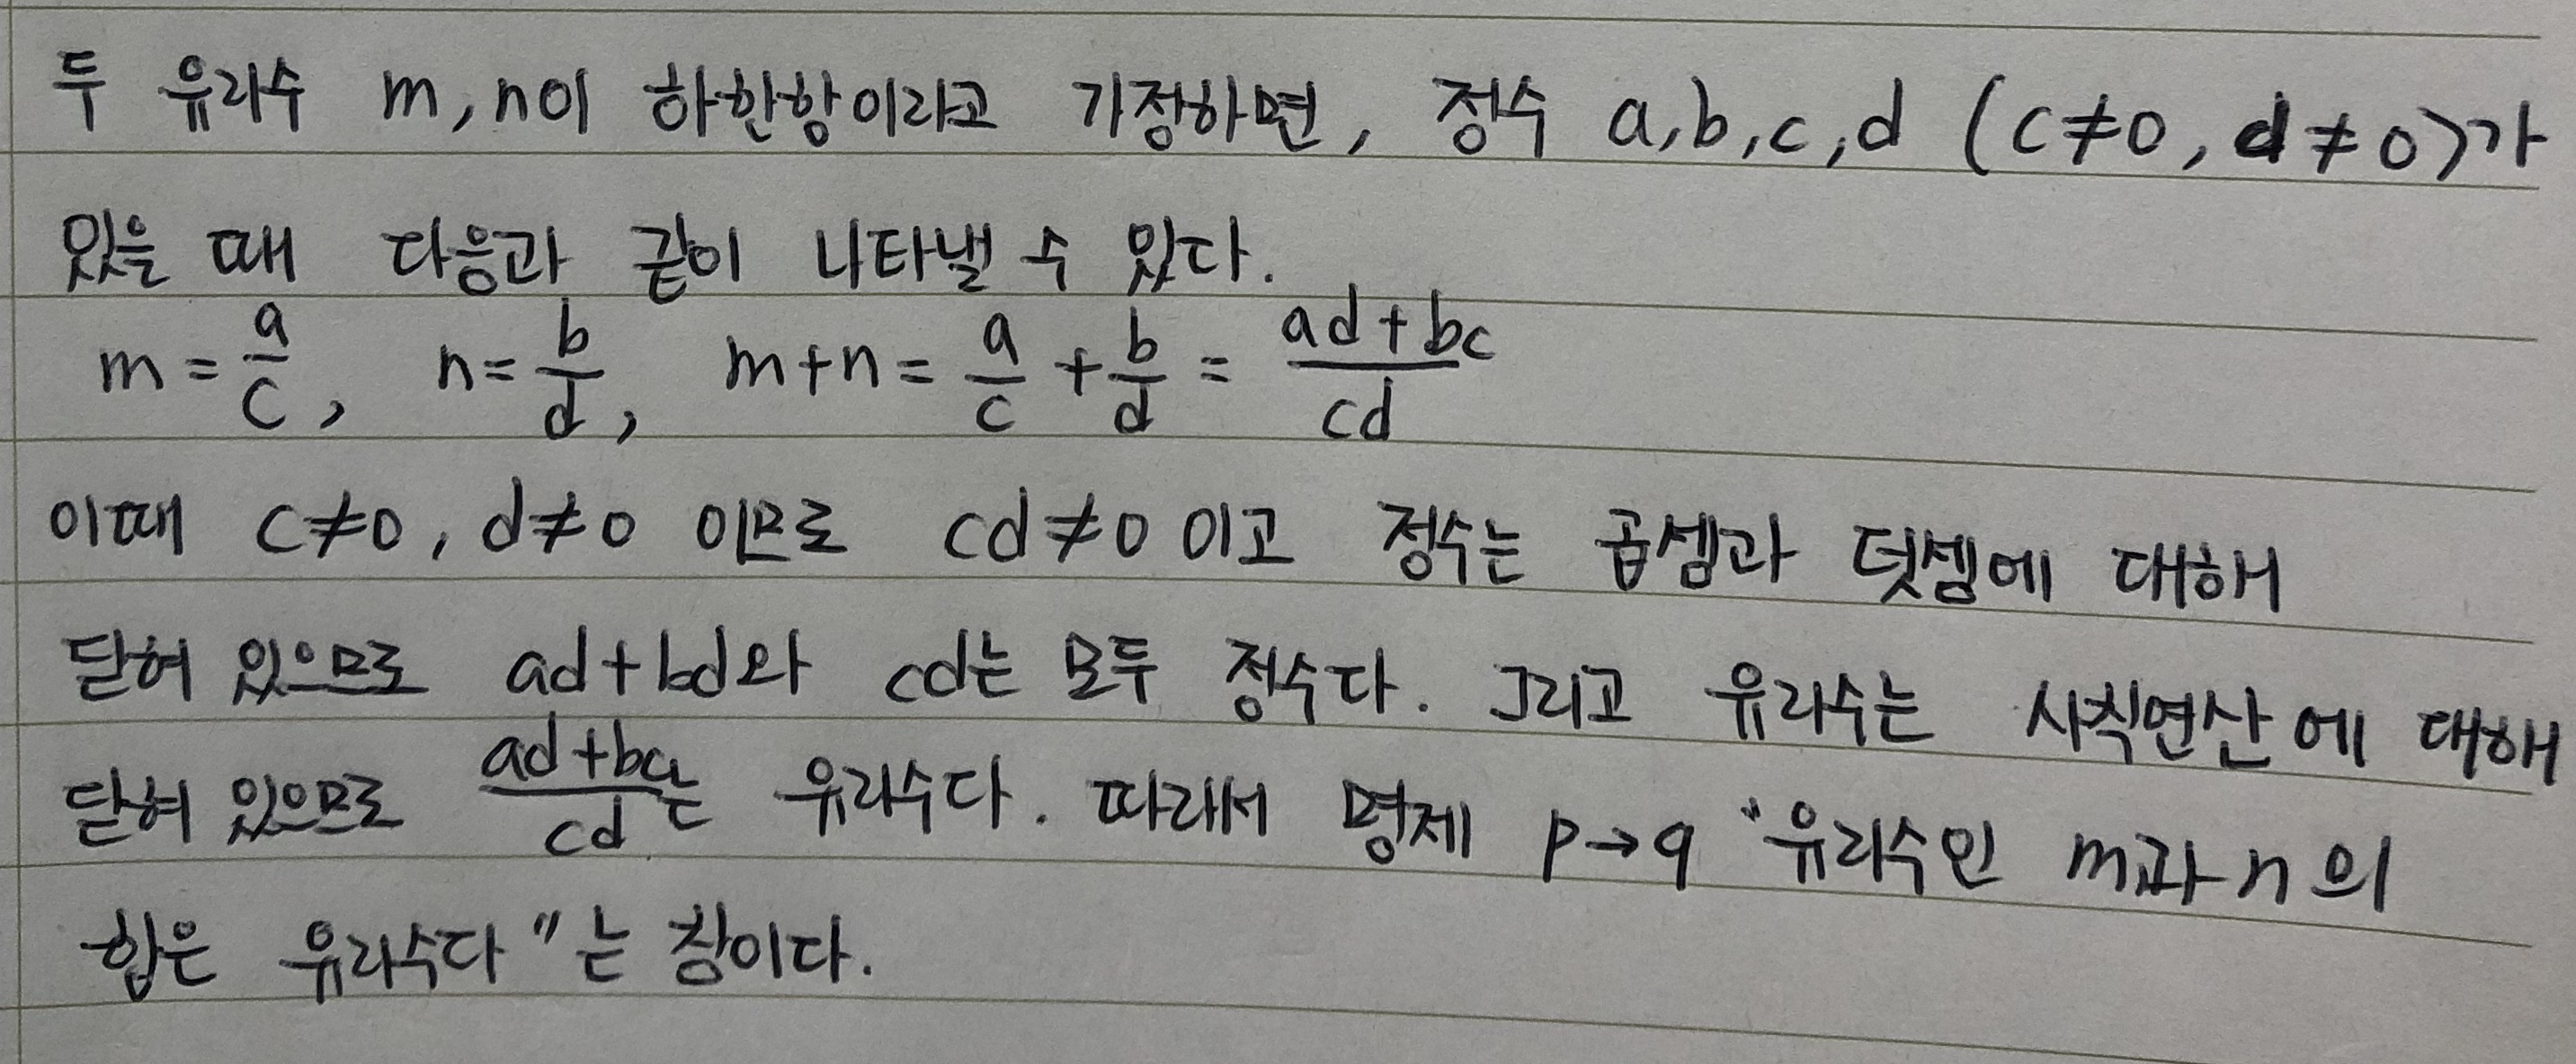 두 유리수 m, n이 하한항이라고 가정하면, 정수 a, b, c, d (c≠0, d≠0)가
있을 때 다음과 같이 나타낼 수 있다.
m = a/c, n = b/d, m+n = a/c + b/d = (ad+bc)/cd
이때 c≠0, d≠0 이므로 cd≠0 이고 정수는 곱셈과 덧셈에 대해
닫혀 있으므로 ad+bd와 cd는 모두 정수다. 그리고 유리수는 사칙연산에 대해
닫혀 있으므로 (ad+bc)/cd는 유리수다. 따라서 명제 p→q "유리수인 m과 n의
합은 유리수다"는 참이다.